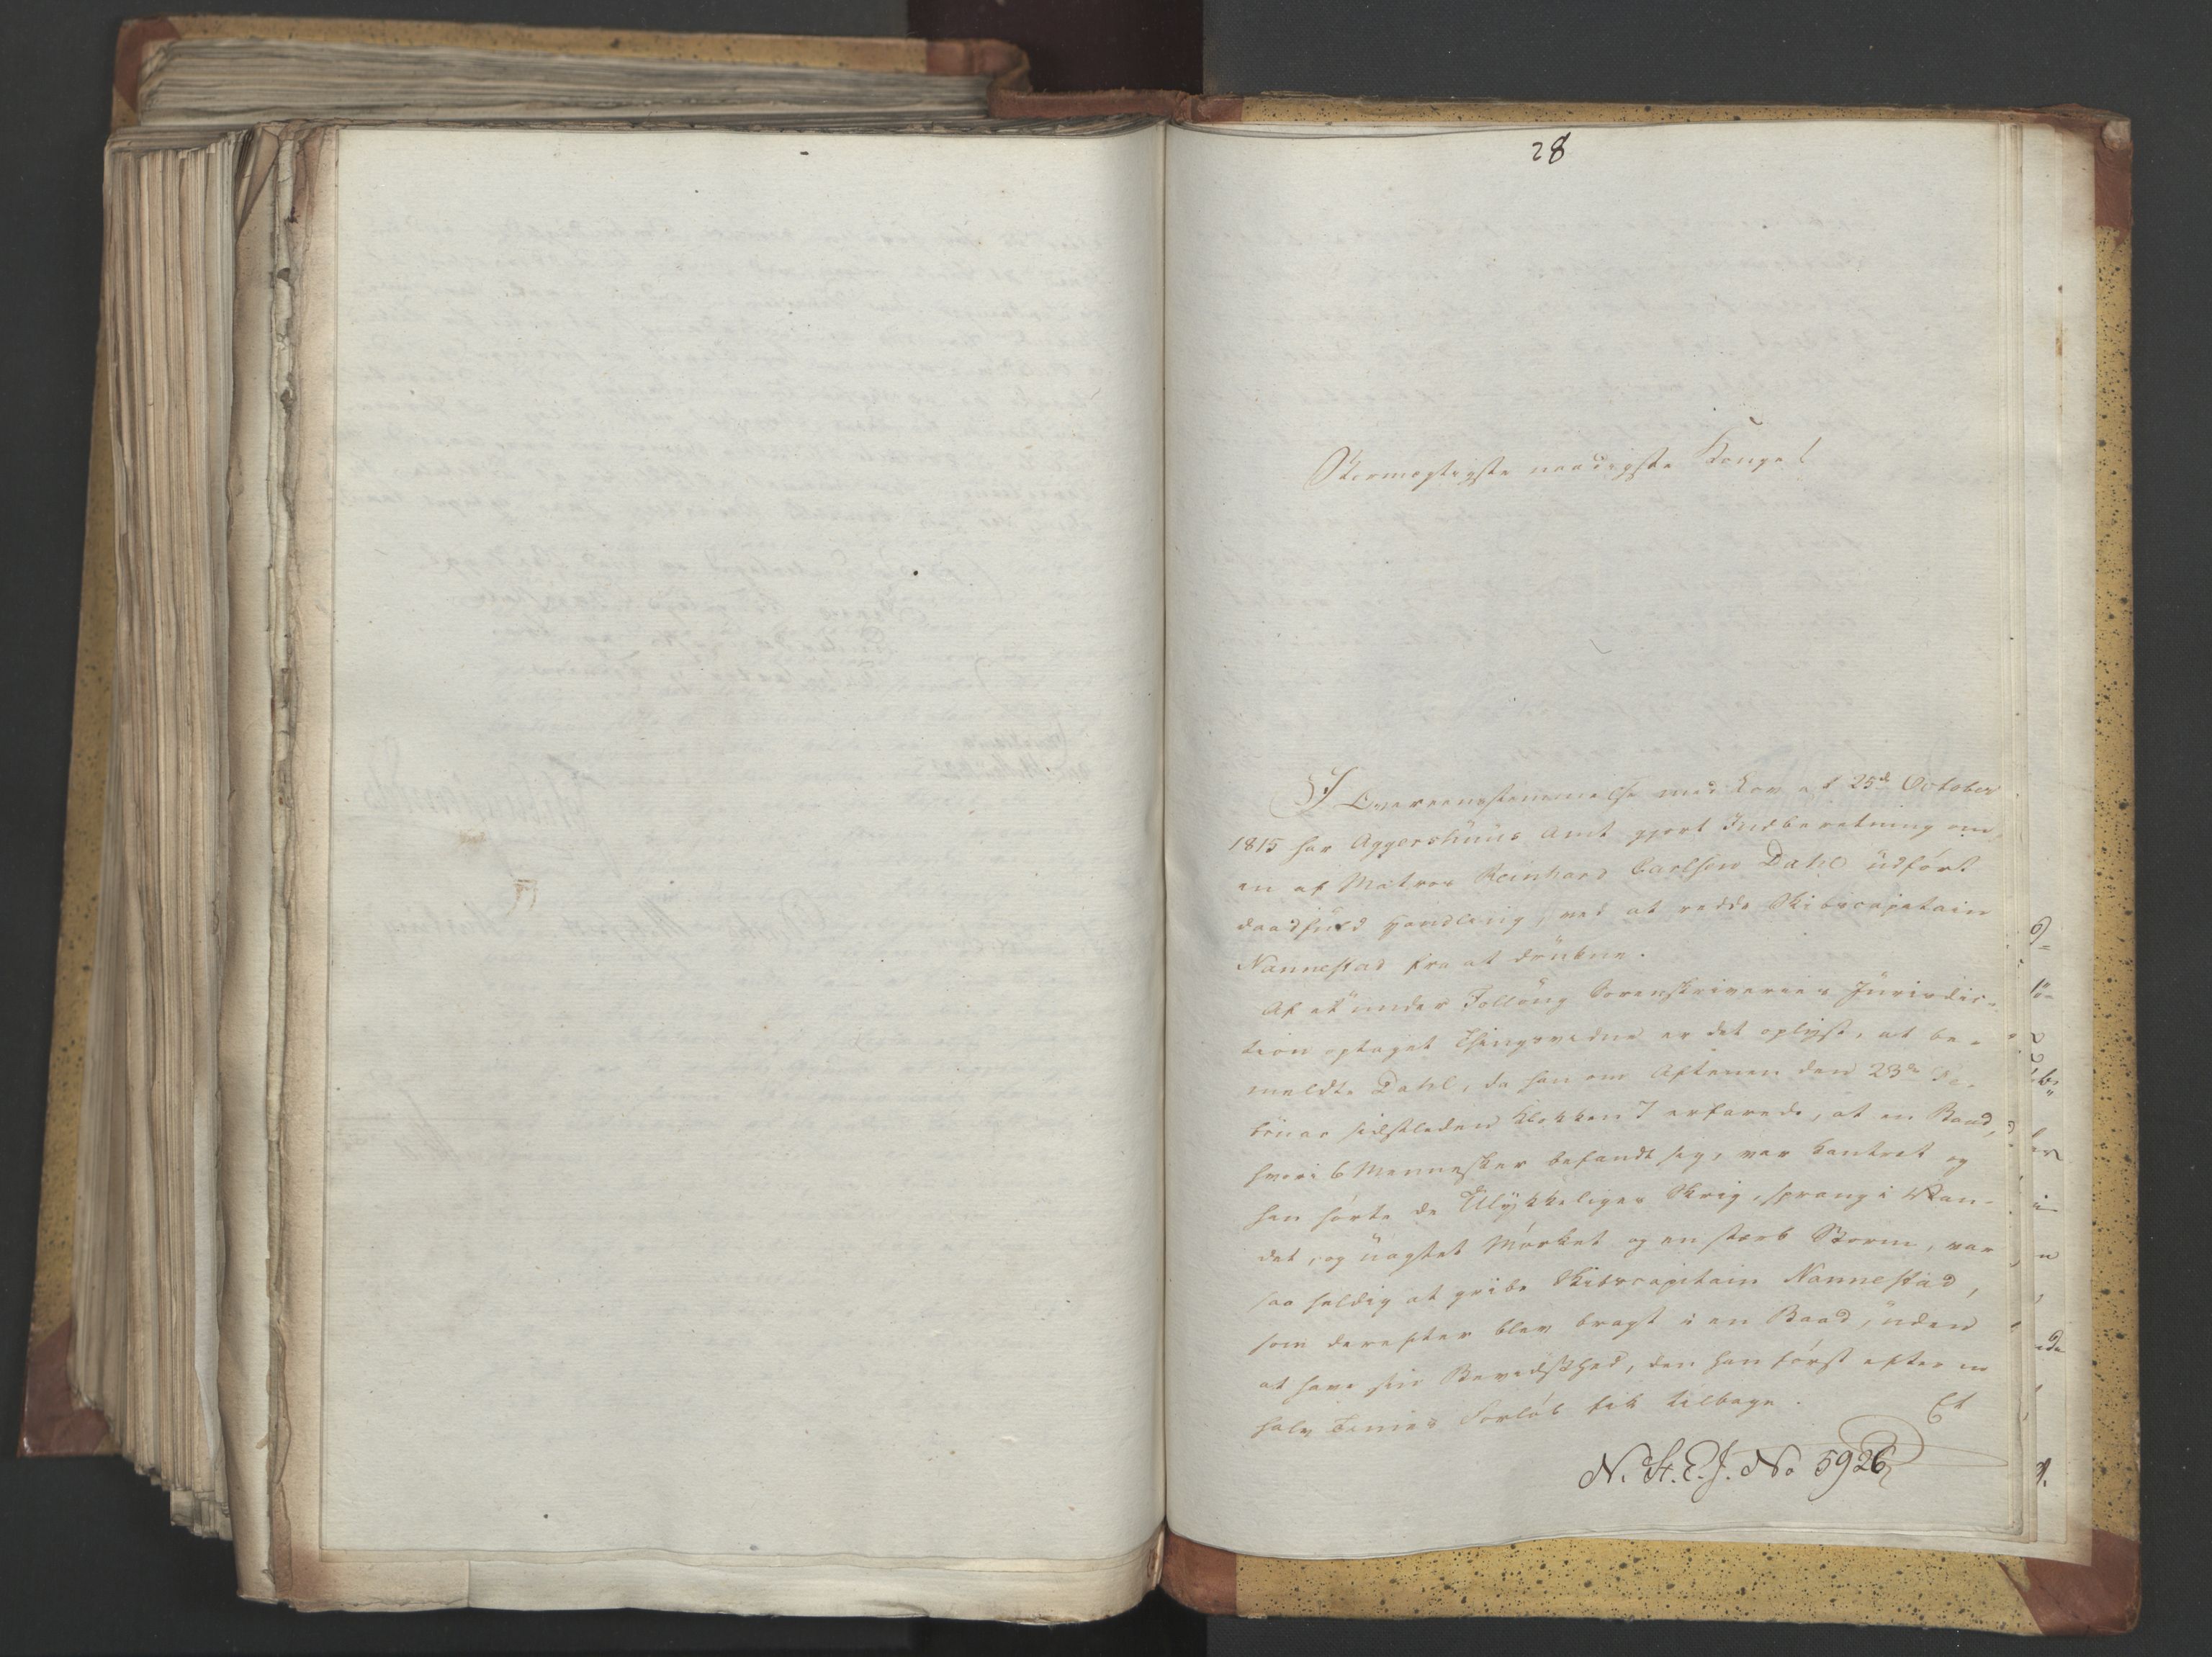 28
Stormægtigste naadigste Konge!
I Overeensstemmelse med Lov af 25de October
1815 har Aggershuus Amt gjort Indberetning om
en af Matros Reinhard Carlsen Dahl udført
daadfuld Handling, ved at redde Skibscapitain
Nannestad fra at drukne.
Af et under Folloug Sorenskriveries Jurisdic-
tion optaget Thingsvidne er det oplyst, at be-
meldte Dahl, da han om Aftenen den 23de Fe-
bruar sidstleden Klokken 7 erfarede, at en Baad,
hvori 6 Mennesker befandt sig, var kantret og
han hørte de Ulykkeliges Skrig, sprang i Van-
det, og uagtet Mørket og en stærk Storm, var
saa heldig at gribe Skibscapitain Nannestad,
som derefter blev bragt i en Baad, uden
at have sin Bevidsthed, den han først efter en
halv Times Forløb fik tilbage.
Et
N. St. E. J. No 5926